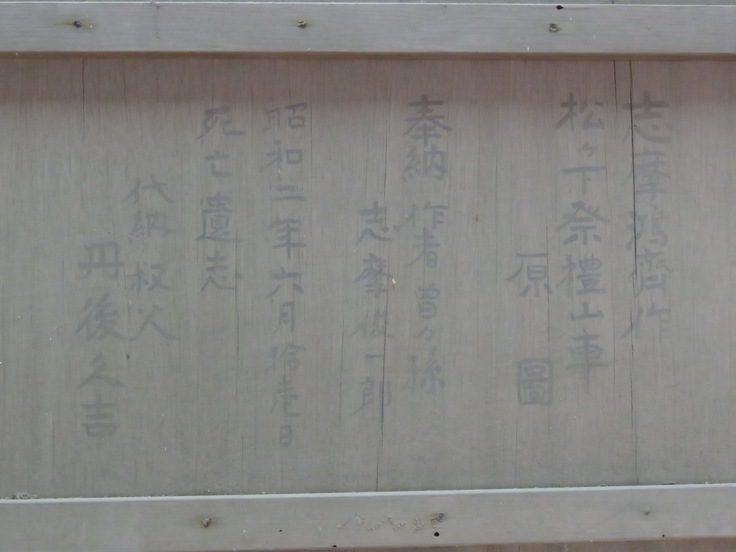 志摩鴻齊作
松ヶ下祭禮山車
原圖
奉納 作者曽々孫
志摩俊一郎
昭和二年六月拾壱日
死亡遺志
代納 叔父
丹後久吉